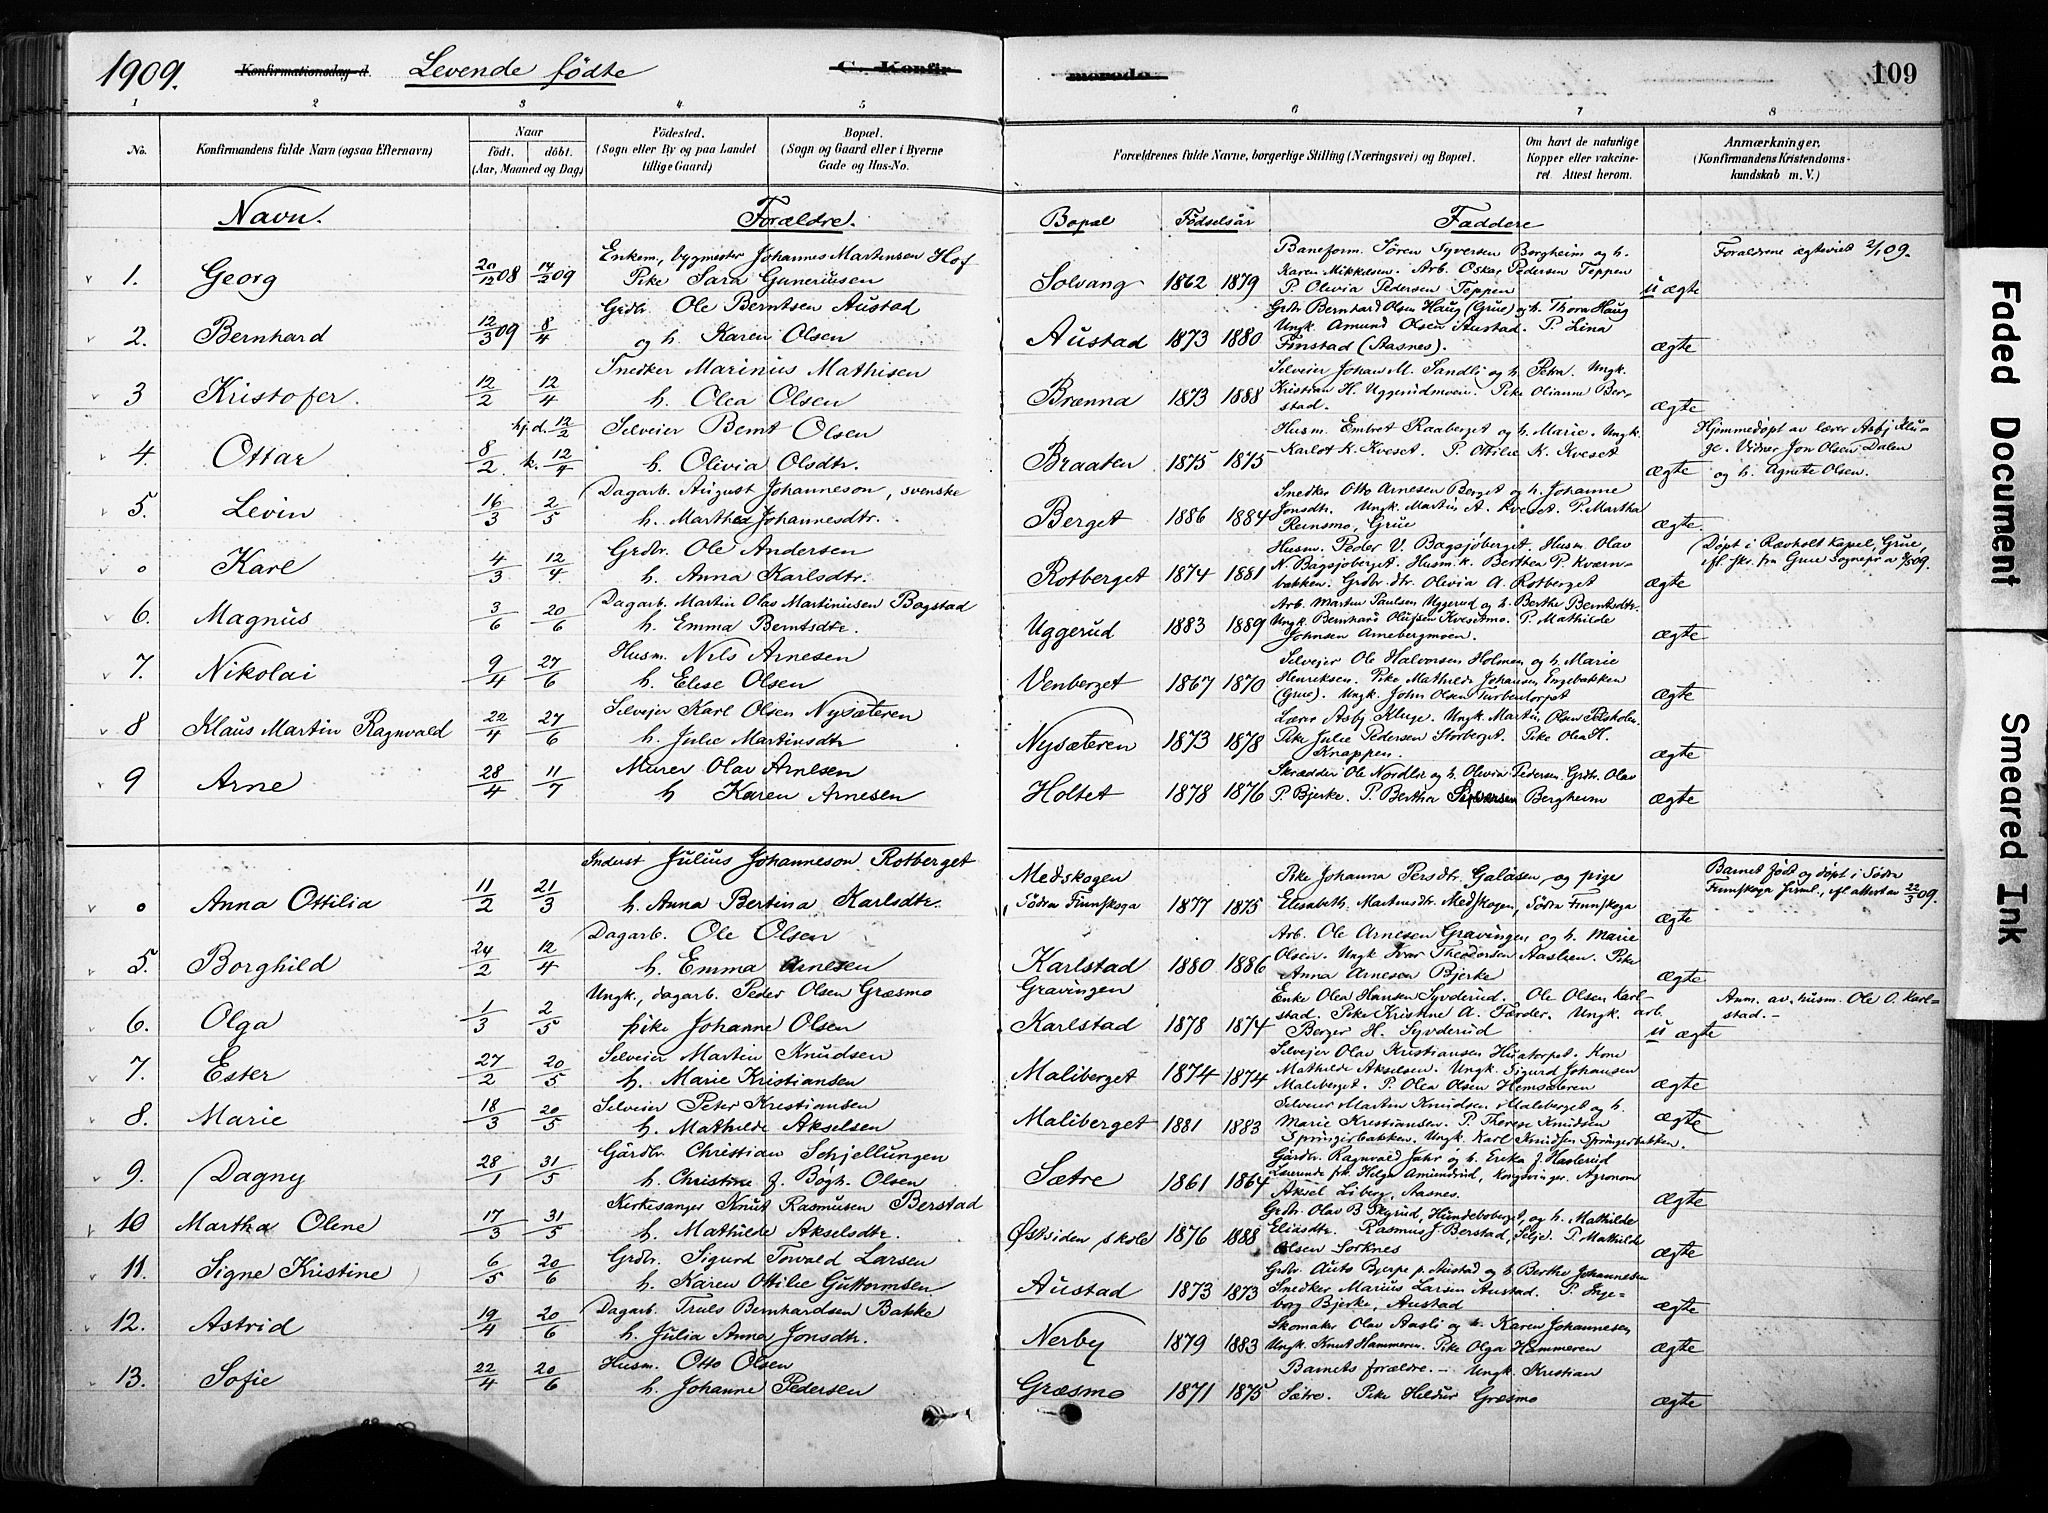 1909. Konfirmationsdag d. Levende fødte C. Konfir
1 2 3 4 5
No.
Konfirmandens fulde Navn (ogsaa Efternavn)
Naar
født. døbt.
(Aar, Maaned og Dag)
Fødested.
(Sogn eller By og paa Landet
tillige Gaard)
Bopæl.
(Sogn og Gaard eller i Byerne
Gade og Hus-No.
Navn. Forældre.
Enkem, bygmester Johannes Martinsen Hof
1. Georg 20/12 08 14/2 09 Pike Sara Guneriusen
Grdbr Ole Berntsen Austad
2. Bernhard 12/3 09 8/4 og h. Karen Olsen
Snedker Marinus Mathisen
3 Kristofer. 12/2 12/4 h. Olea Olsen
hj.d. 12/2 Selveier Bernt Olsen
4. Ottar 8/2 k. 12/4 h. Olivia Olsdtr.
Dagarb. August Johanneson, svenske
5. Levin 16/3 2/5 h. Marthea Johannesdtr.
Grdbr. Ole Andersen
o Karl 4/3 12/4 h. Anna Karlsdtr.
Dagarb. Martin Olas Martinusen Bogstad
6. Magnus 3/6 20/6 h. Emma Berntsdtr.
Husm. Nils Arnesen
7. Nikolai 9/4 27/6 h. Elise Olsen
Selvejer Karl Olsen Nysæteren
8 Klaus Martin Ragnvald 22/4 27/6 h. Julie Martinsdtr
Murer Olav Arnesen
9 Arne 28/4 11/7 h Karen Arnesen
Inderst Julius Johanneson Rotberget
o Anna Ottilia 11/2 21/3 h. Anna Bertina Karlsdtr.
Dagarb. Ole Olsen
5. Borghild 24/2 12/4 h. Emma Arnesen
Ungk., dagarb. Peder Olsen Græsmo
6. Olga 1/3 2/5 pike Johanne Olsen
Selveier Martin Knudsen
7. Ester 27/2 20/5 h. Marie Kristiansen
Selveier Peter Kristiansen
8. Marie 18/3 20/5 h. Mathilde Akselsen
Gårdbr. Christian Schjellungen
9. Dagny 28/1 31/5 h. Christine f. Bøgh. Olsen
Kirkesanger Knut Rasmusen Berstad
10 Martha Olene 17/3 31/5 h. Mathilde Akselsdtr.
Grdbr. Sigurd Torvald Larsen
11. Signe Kristine 6/5 20/6 h. Karen Ottilie Guttormsen
Dagarb. Truls Bernhardsen Bakke
12. Astrid 19/4 20/6 h. Julia Anna Jonsdtr.
Husm. Otto Olsen
13. Sofie 22/4 20/6 h. Johanne Pedersen
merede 109
6 7 8
Forældrenes fulde Navne, borgerlige Stilling (Næringsvei) og Bopæl.
Om havt de naturlige
Kopper eller vakcine-
ret. Attest herom.
Anmærkninger.
(Konfirmandens Kristendoms-
kundskab m. V.)
Bopæl Fødselsår Faddere
Baneform. Sören Syversen Borgheim og h. Forældrene ægteviet 2/1 09.
Karen Mikkelsen. Arb. Oskar Pedersen Toppen
Solvang 1862 1879 P. Olivia Pedersen Toppen u ægte
Grdbr Bernhard Olsen Haug (Grue) og h. Thora Haug
Ungk. Amund Olsen Austad. P. Lina
Austad 1873 1880 Finstad (Aasnes). ægte
Selveier Johan M. Sandli og h. Petra. Ungk.
Brænna 1873 1888 Kristian H. Uggerudmoen. Pike Olianne Ber-
stad. ægte
Husm. Embret Raaberget og h. Marie. Ungk. Hjemmedøpt av lærer Asbj Klu-
Braaten 1875 1875 Karlot K. Kveset. P. Ottilie K. Kveset ge. Vidner Jon Olsen Dalen
ægte og h. Agnete Olsen.
Snedker Otto Arnesen Berget og h. Johanne
Jonsdtr. Ungk. Martin A. Kveset. P. Martha
Berget 1886 1884 Reinsmo, Grue ægte.
Husm. Peder V. Bagsjøberget. Husm. Olav Døpt i Rævholt Kapel, Grue,
N. Bagsjøberget. Husm.k. Berthea P. Kværn-
Rotberget 1874 1881 bakken. Grdbr. dtr. Olivia A. Rotberget ægte
Arb. Martin Paulsen Uggerud og h. Berthe Berntsdtr.
Ungk. Bernhard Olufsen Kvesetmo. P. Mathilde
Uggerud 1883 1889 Johnsen Arnebergmoen. ægte
Selvejer Ole Halvorsen Holmen og h. Marie
Henreksen. Pike Mathilde Johansen Engebakken
Venberget 1867 1870 (Grue). Ungk. John Olsen Furbentorpet ægte
Lærer Asbj Kluge. Ungk. Martin Olsen
Nysæteren 1873 1878 Pike Julie Pedersen Storberget. Pike Olea H.
Knappen. ægte
Skrædder Ole Nordli og h. Olivia Pedersen Grdbr. Olav
Holtet 1878 1876 P. Bjerke. P. Bertha Syversen Bergheim ægte
Medskogen Pike Johanna Persdtr. Galåsen, og pige Barnet født og døpt i Södra
Södra Finnskoga 1877 1875 Elisabeth Martinsdtr. Medskogen, Södra Finnskoga ægte
Arb. Ole Arnesen Gravingen og h. Marie
Karlstad 1880 1886 Olsen. Ungk Ivar Theodorsen Aaslien. Pike
Anna Arnesen Bjerke ægte
Gravingen Enke Olea Hansen Syvderud. Ole Olsen Karl- Anm. av husm. Ole O. Karl-
Karlstad 1878 1874 stad. Pike Kristine A. Färder. Ungk. arb. stad.-
Berger H. Syvderud u ægte
Selvejer Olav Kristiansen Huatorpet. Kone
Mathilde Akselsen. Ungk. Sigurd Johansen
Maliberget 1874 1874 Maliberget. P. Olea Olsen Hemsæteren ægte
Selveier Martin Knudsen Maliberget og h.
Maliberget 1881 1883 Marie Kristiansen. P. Therese Knudsen ægte
Springirbakken. Ungk. Karl Knudsen Springerbakken.
Gårdbr. Ragnvald Jahr og h. Erika f. Haslerud
Lærerinde frk. Helga Amundrud, Kongsvinger. Agronom
Sætre 1861 1864 Aksel Liberg, Aasnes. ægte
Grdbr. Olav B. Skyrud, Hundeboberget, og h. Mathilde
Østsiden skole 1876 1888 Eliasdtr. Rasmus J. Berstad, Selje. P. Mathilde
Olsen Sorknes ægte
Grdbr. Bjerpe p. Austad og h Berthe Johannesen
Austad 1873 1873 Snedker Marius Larsen Austad. P. Inge-
borg Bjerke, Austad ægte
Skomaker Olav Aasli og h. Karen Johannesen
Nerby 1879 1883 Ungk. Knut Hammeren. Pike Olga Hammeren ægte
Barnets forældre. - Ungk. Kristian
Græsmo 1871 1875 Sætre. Pike Hildur Græsmo ægte
Faded Document
Smeared Ink